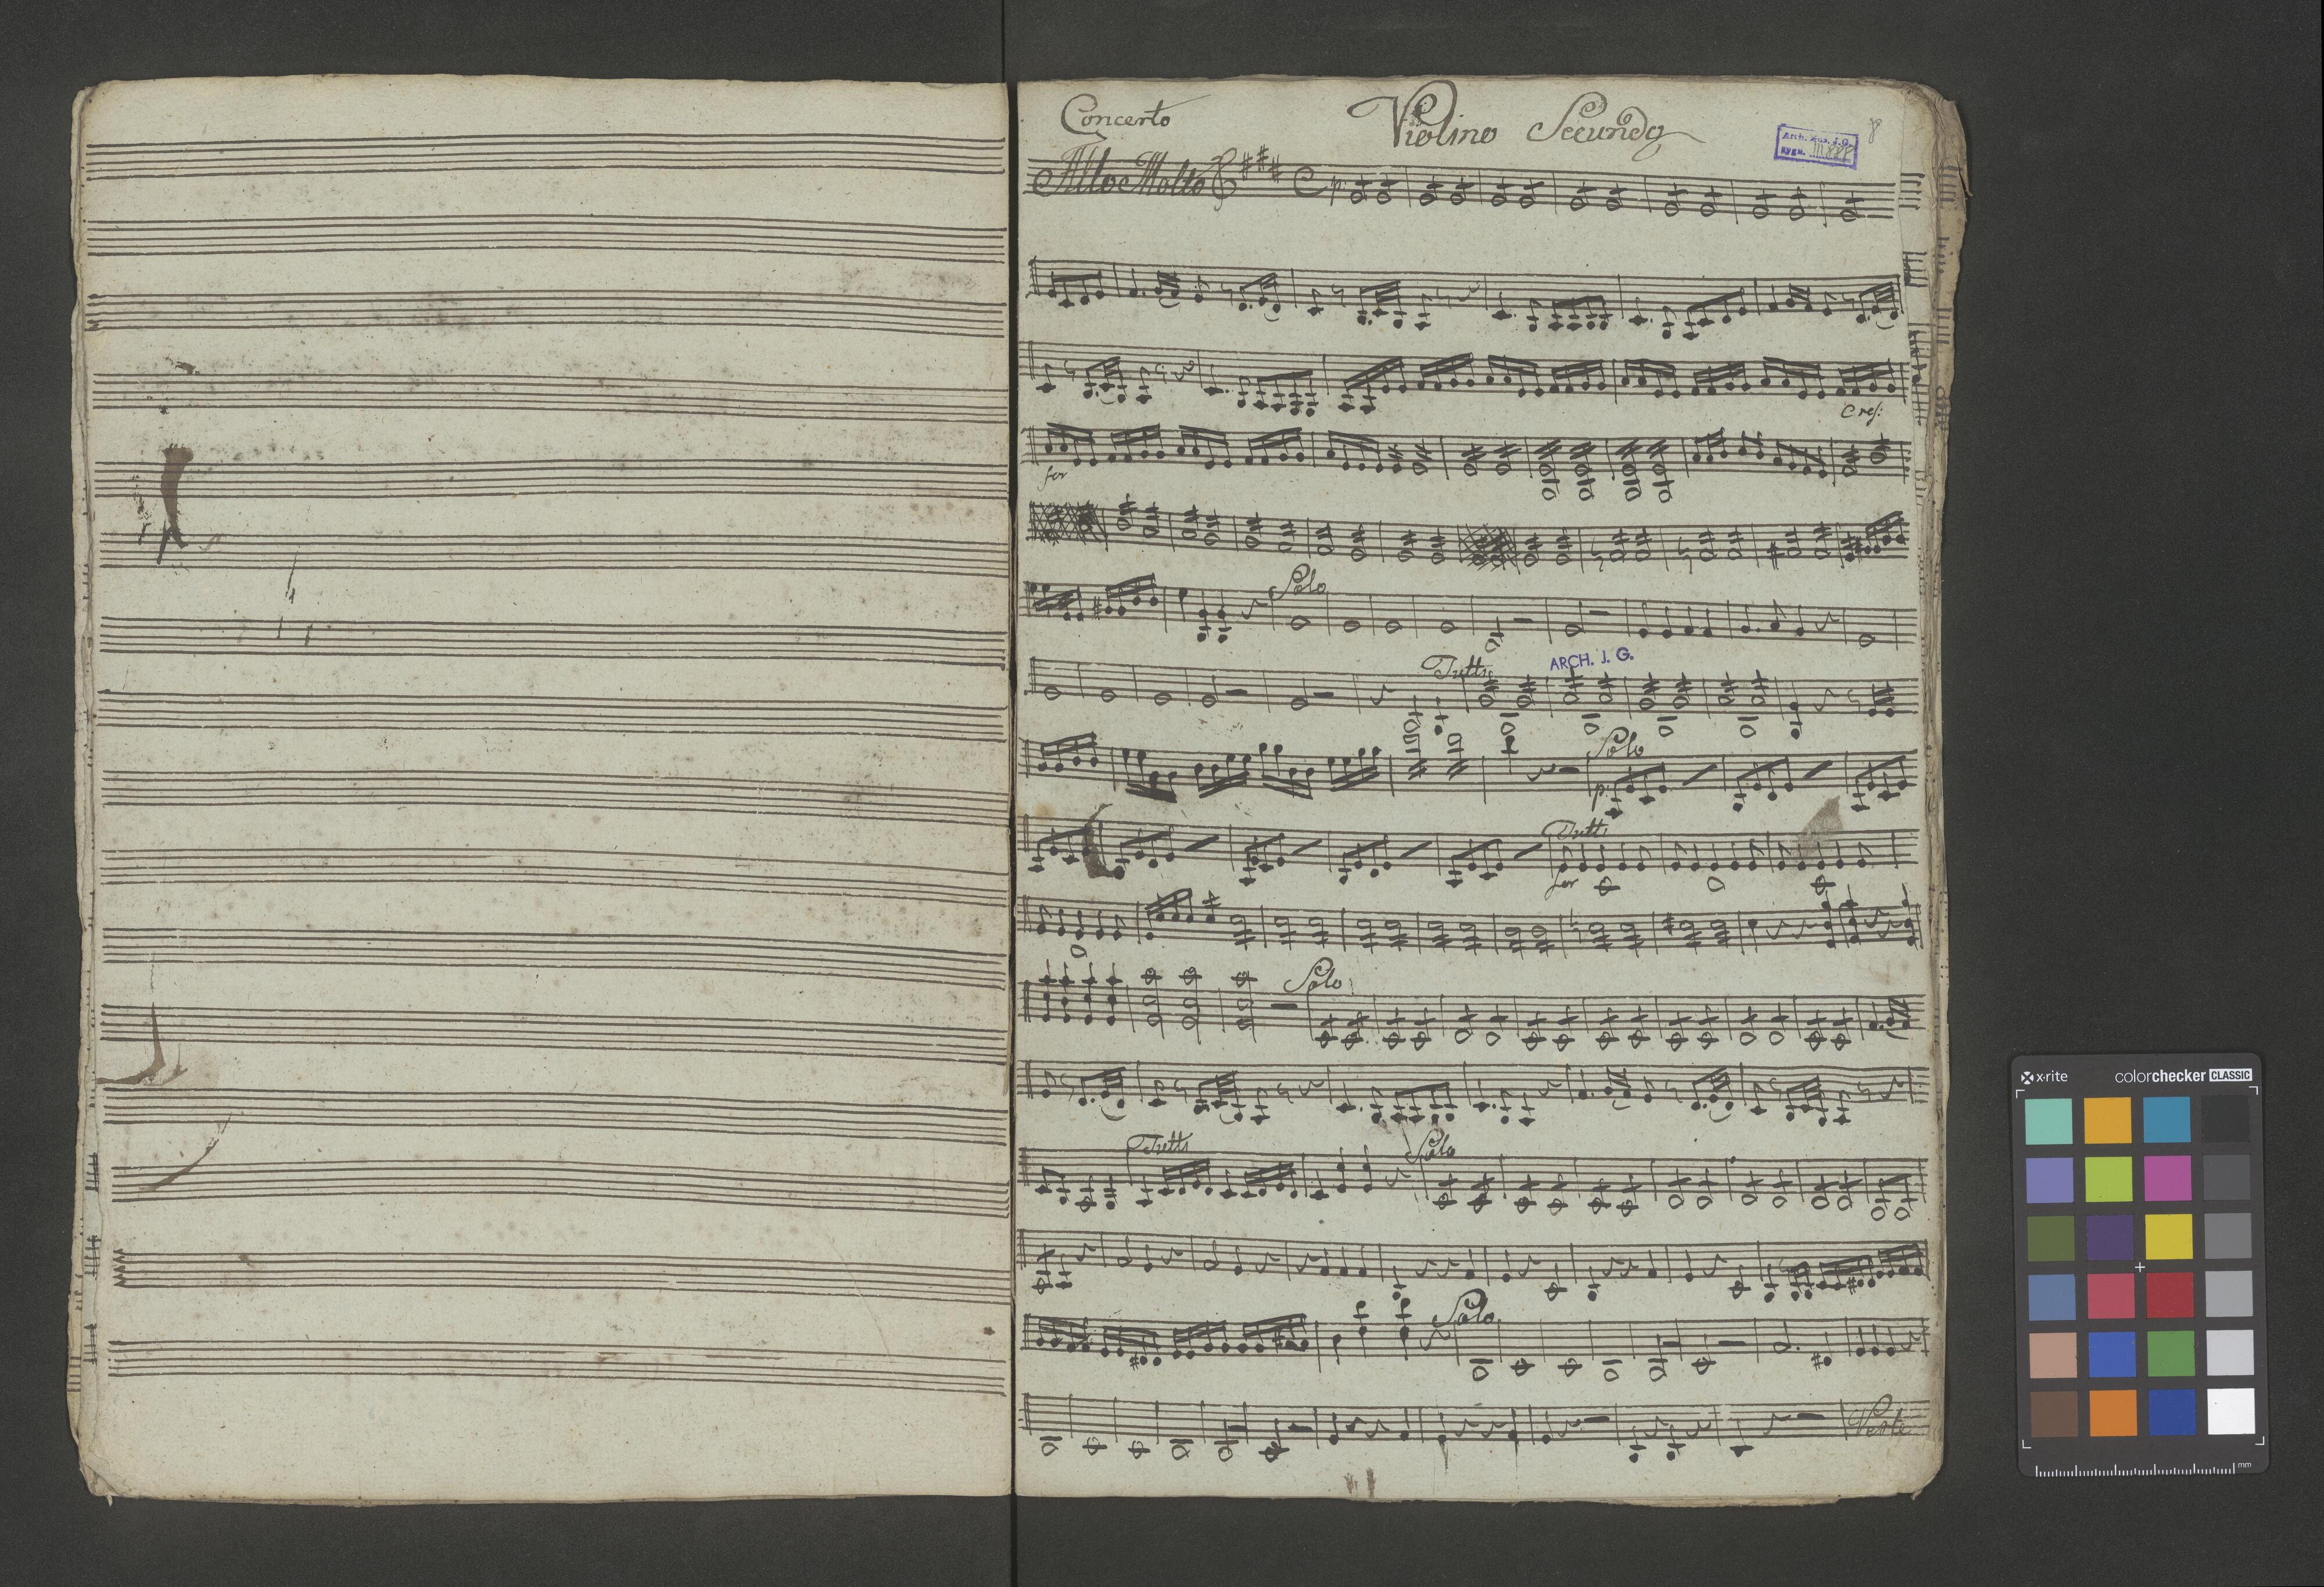 Concerto
Violino Secundo
8
Allo Molto
p:
Cres:
for
Solo
ARCH. J. G.
Tutti
Solo
p:
Tutti
for
Solo
Tutti
Solo
Solo
x-rite colorchecker CLASSIC
mm